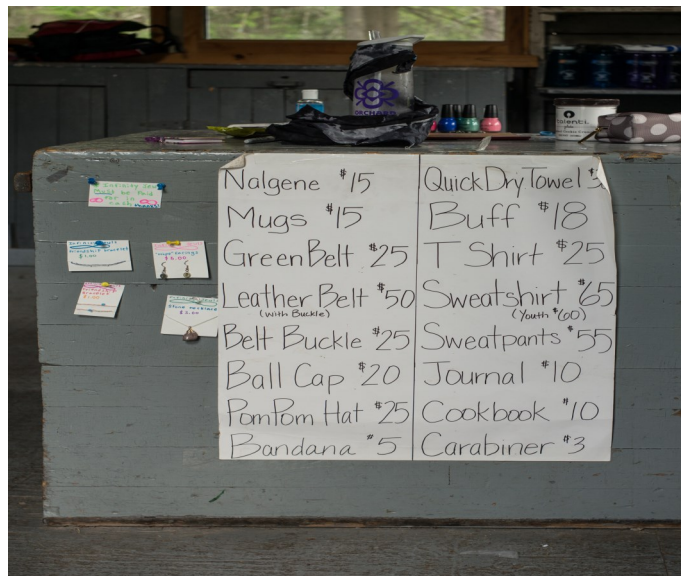 Nalgene $15
Mugs $15
Green Belt $25
Leather Belt $50
(with Buckle)
Belt Buckle $25
Ball Cap $20
PomPom Hat $25
Bandana $5
Quick Dry Towel
Buff $18
T Shirt $25
Sweatshirt $65
(Youth $60)
Sweatpants $55
Journal $10
Cookbook $10
Carabiner $3
Must be Paid
For in
cash
$6.00
$2.00
ORCHARD